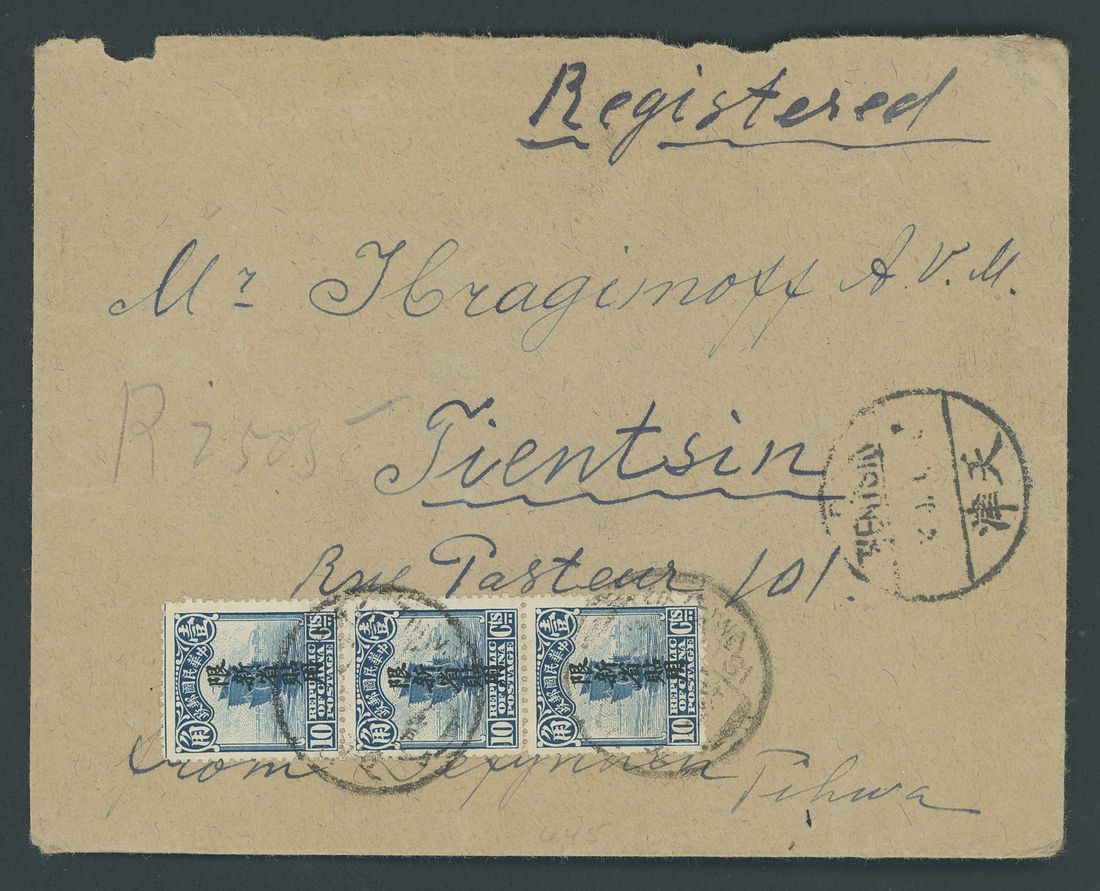 Registered
Mr Ibragimoff A. V. M.
R 2505
Tientsin
TIENTSIN
天津
Rue Pasteur 101.
中華民國郵政
壹角
限新省貼用
REPUBLIC OF CHINA POSTAGE
10 CTS
中華民國郵政
壹角
限新省貼用
REPUBLIC OF CHINA POSTAGE
10 CTS
中華民國郵政
壹角
限新省貼用
REPUBLIC OF CHINA POSTAGE
10 CTS
from
Tihwa
645